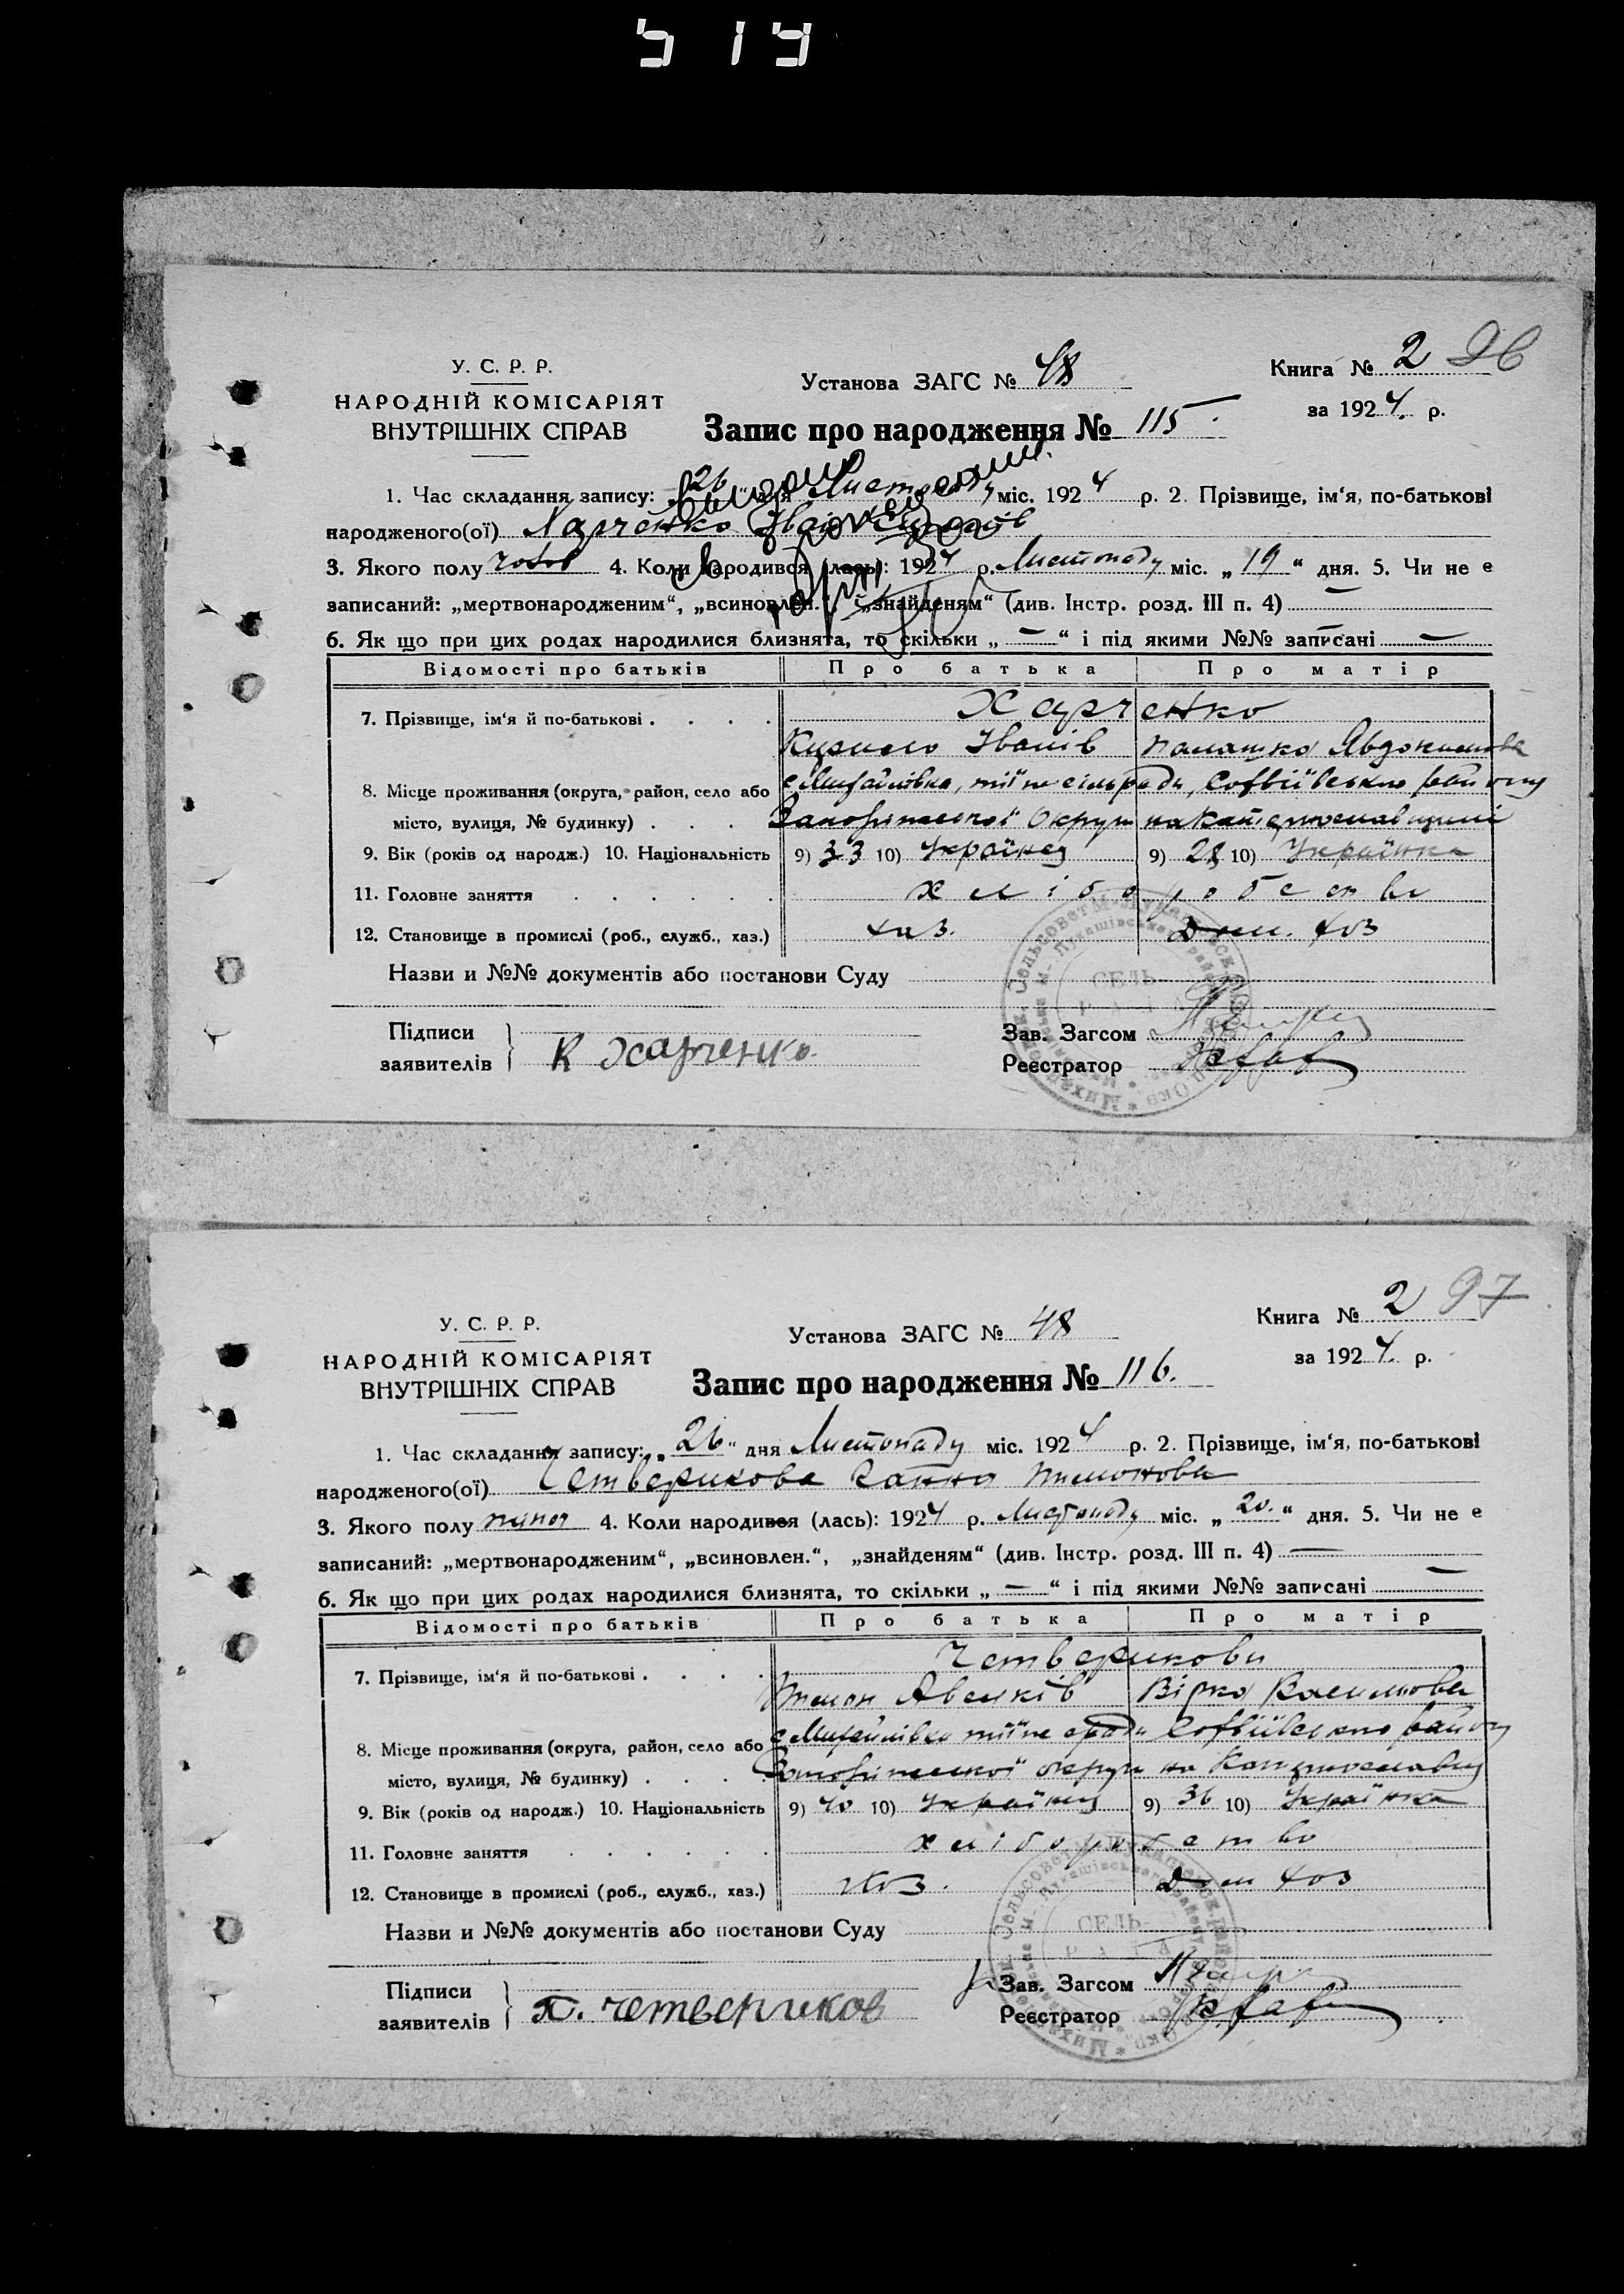 У. С. Р. Р.
НАРОДНІЙ КОМІСАРІЯТ
ВНУТРІШНІХ СПРАВ
Установа ЗАГС № 48
Книга № 2 96
за 1924 р.
Запис про народження № 115
1. Час складання запису: „26“ дня Листопаду міс. 1924 р. 2. Прізвище, ім'я, по-батькові
народженого(ої) Харченко Іван
3. Якого полу чолов 4. Коли народився (лась): 1924 р. Листопаду міс. „19“ дня. 5. Чи не є
записаний: „мертвонародженим“, „всиновлен.“, „знайденям“ (див. Інстр. розд. III п. 4) —
6. Як що при цих родах народилися близнята, то скільки „—“ і під якими №№ записані —
Відомості про батьків Про батька Про матір
7. Прізвище, ім'я й по-батькові . . . . Харченко
Кузьма Іванів Палашка Явдокимова
8. Місце проживання (округа, район, село або с Михайлівка, тії ж сільради, Софіївського району
місто, вулиця, № будинку) . . . . Запоріжської Округи на Катеринославщині
9. Вік (років од народж.) 10. Національність 9) 33 10) Українец 9) 28 10) Українка
11. Головне заняття . . . . . . хліборобство
12. Становище в промислі (роб., служб., хаз.) хаз. Дом. хоз
Назви и №№ документів або постанови Суду
Підписи
заявителів К Харченко
Зав. Загсом
Реєстратор
У. С. Р. Р.
НАРОДНІЙ КОМІСАРІЯТ
ВНУТРІШНІХ СПРАВ
Установа ЗАГС № 48
Книга № 2 97
за 1924 р.
Запис про народження № 116.
1. Час складання запису: „26“ дня Листопаду міс. 1924 р. 2. Прізвище, ім'я, по-батькові
народженого(ої) Четверикова Ганна Пимонова
3. Якого полу жіноч 4. Коли народився (лась): 1924 р. Листопаду міс. „20.“ дня. 5. Чи не є
записаний: „мертвонародженим“, „всиновлен.“, „знайденям“ (див. Інстр. розд. III п. 4) —
6. Як що при цих родах народилися близнята, то скільки „—“ і під якими №№ записані —
Відомості про батьків Про батька Про матір
7. Прізвище, ім'я й по-батькові . . . . Четверикови
Пимон Вірка
8. Місце проживання (округа, район, село або с Михайлівка тії ж с ради Софіївського району
місто, вулиця, № будинку) . . . . Запоріжської округи на Катеринославщ
9. Вік (років од народж.) 10. Національність 9) 40 10) Українец 9) 36 10) Українка
11. Головне заняття . . . . . . хліборобство
12. Становище в промислі (роб., служб., хаз.) хоз. Дом хоз
Назви и №№ документів або постанови Суду
Підписи
заявителів П. Четвериков
Зав. Загсом
Реєстратор